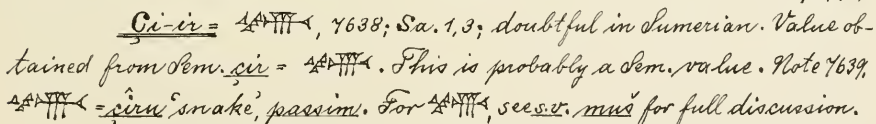 Çi-ir = 𒈲, 7638; Sa. 1,3; doubtful in Sumerian. Value ob-
tained from Sem. çir = 𒈲. This is probably a Sem. value. Note 7639,
𒈲 = çîru ‘snake’, passim. For 𒈲, see s.v. muš for full discussion.